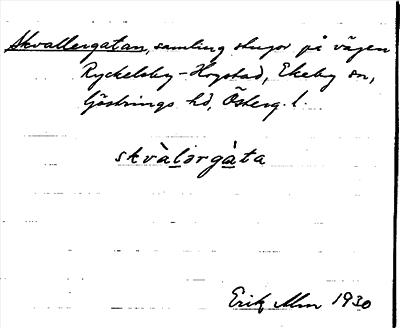 Skvallergatan, samling stugor på vägen
Ryckelsby-Hogstad, Ekeby sn,
Göstrings hd, Österg. l.
skvàlərgàta
Erik Alm 1930